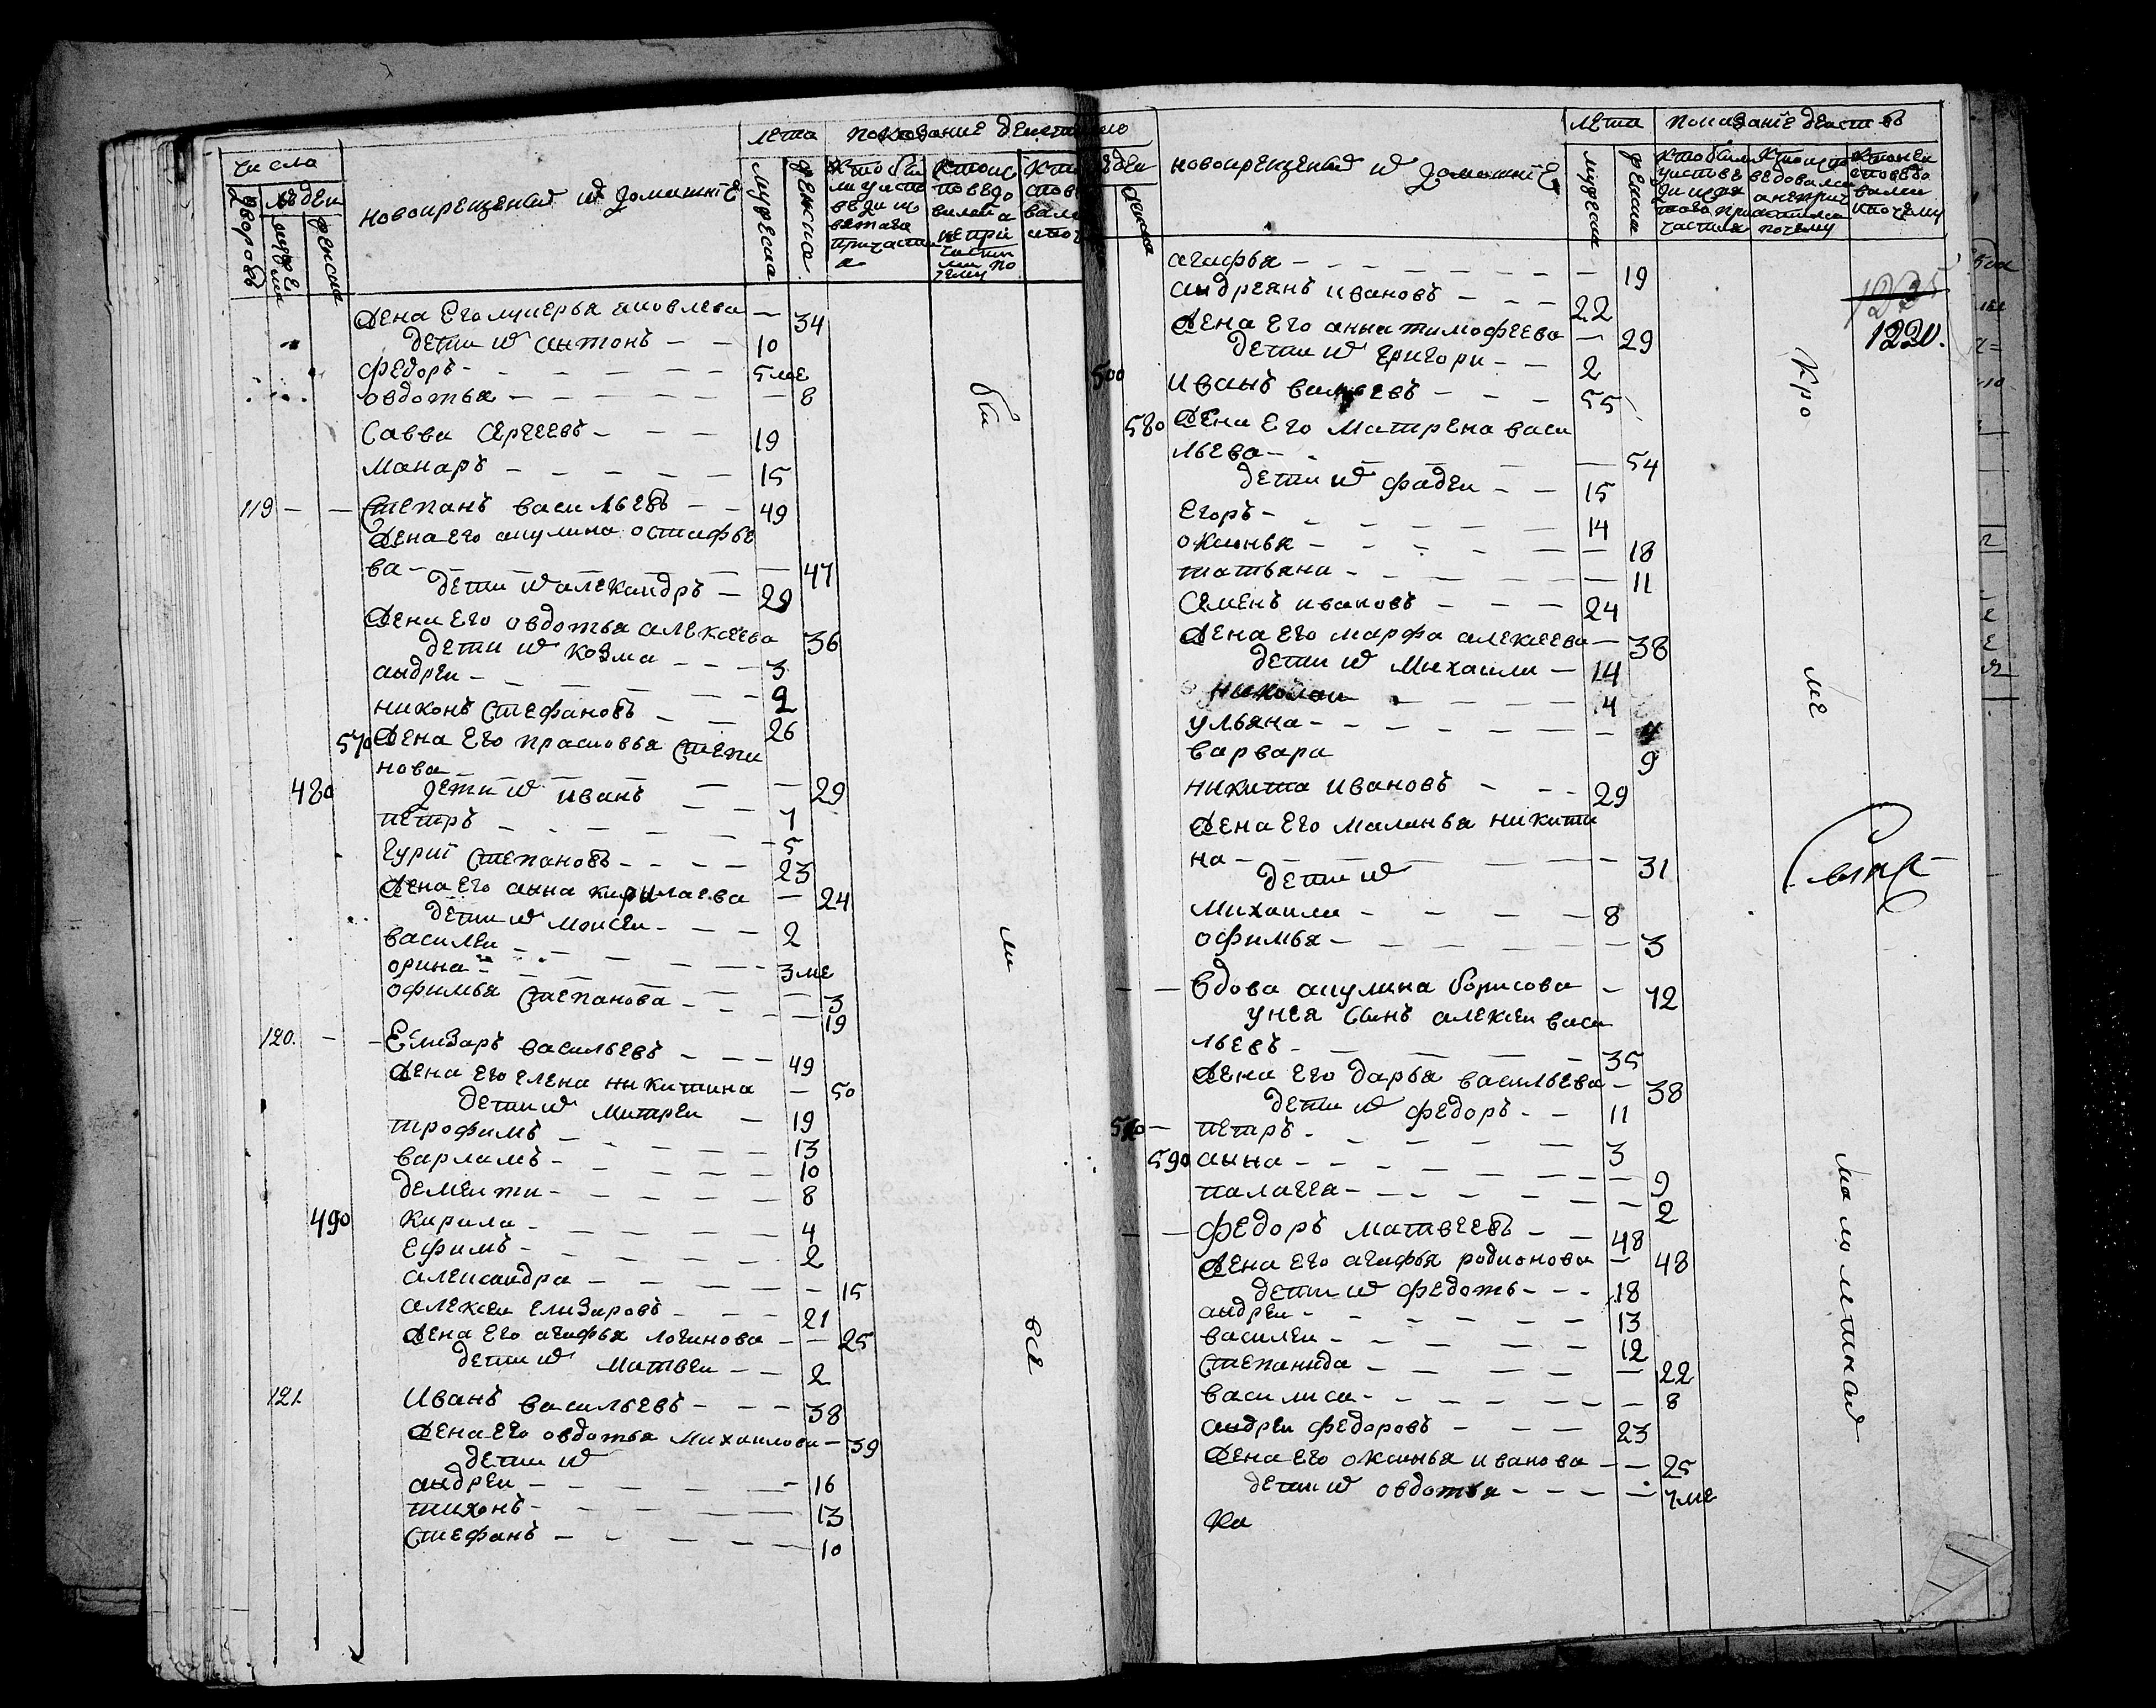 числа
лета
показание действ
дворовъ
людеи
мужеска
женска
новокрещеныя и домашнїе
мужеска
женска
кто бы
ли у испо
веди и с
вятаго
причасти
я
кто исп
поведо
вались а
не при
частил
ись по
чему
жена его лукерья яковлева — 34
дети их антонъ — — 10
федоръ — — — — — 5 ме
овдотья — — — — — 8
Савва Сергеевъ — — — 19
макаръ — — — — — 15
119 — — Степанъ васильевъ — — 49
жена его акулина остафье
ва — — — — — — 47
дети их александръ — 29
жена его овдотья алексеева 36
дети их козма — — — 3
андреи — — — — — 2
никонъ Стефановъ — — 26
570 жена его прасковья Степа
нова — — — — — — 29
480 дети их иванъ — — 7
петръ — — — — — 5
гурїи Степановъ — — — — 23
жена его анна кирилаева — 24
дети их моисеи — — — 2
василеи — — — — — 3 ме
орина — — — — — 3
офимья Степанова — — — — 19
120. — — Елизаръ васильевъ — — — 49
жена его елена никитина — 50
дети их митреи — 19
трофимъ — — — — — 13
варламъ — — — — — 10
дементи — — — — — 8
490 кирила — — — — — 4
ефимъ — — — — — 2
александра — — — — — 15
алексеи елизаровъ — — — 21
жена его агафья логинова — — 25
дети их матвеи — — 2
121. Иванъ васильевъ — — — 38
жена его овдотья михаилова — 39
дети их
андреи — — — — — 16
тихонъ — — — — — 13
Стефанъ — — — — — 10
бы
ли
все
женска
новокрещеныя и домашнїе
лета
показанїе действъ
мужеска
женска
кто были
у испове
ди и свя
таго при
частия
кто испо
ведовались
а не прич
астились
почему
кто не и
споведо
вались
и почему
агафья — — — — — — — 19
андреянъ ивановъ — — — 22
жена его анна тимофеева — 29
дети их григори — — 2
500 Иванъ васильевъ — — — 55
580 жена его матрена васи
льева — — — — — 54
дети их фадеи — — 15
егоръ — — — — — 14
оксинья — — — — — — 18
татьяна — — — — — — 11
семенъ ивановъ — — — 24
жена его марфа алексеева — 38
дети их михаили — 14
николаи — — — — 4
ульяна — — — — — —
варвара 9
никита ивановъ — — — 29
жена его маланья никити
на — — — — — — 31
дети их
михаили — — — — 8
офимья — — — — — — 3
— — вдова акулина борисова — 72
у нея сынъ алексеи васи
льевъ — — — — — 35
жена его дарья васильева — 38
дети их федоръ — — 11
510 — петръ — — — — — 3
590 анна — — — — — — 9
палагея — — — — — — 2
— — федоръ матвеевъ — — 48
жена его агафья родионова — 48
дети их федотъ — — — 18
андреи — — — — — — 13
василеи — — — — — 12
Степанида — — — — — 22
василиса — — — — — — 8
андреи федоровъ — — — 23
жена его оксинья иванова — — 25
дети их овдотья — — — — — 7 ме
Ка
1225
1220.
кро
ме
малолетныхъ